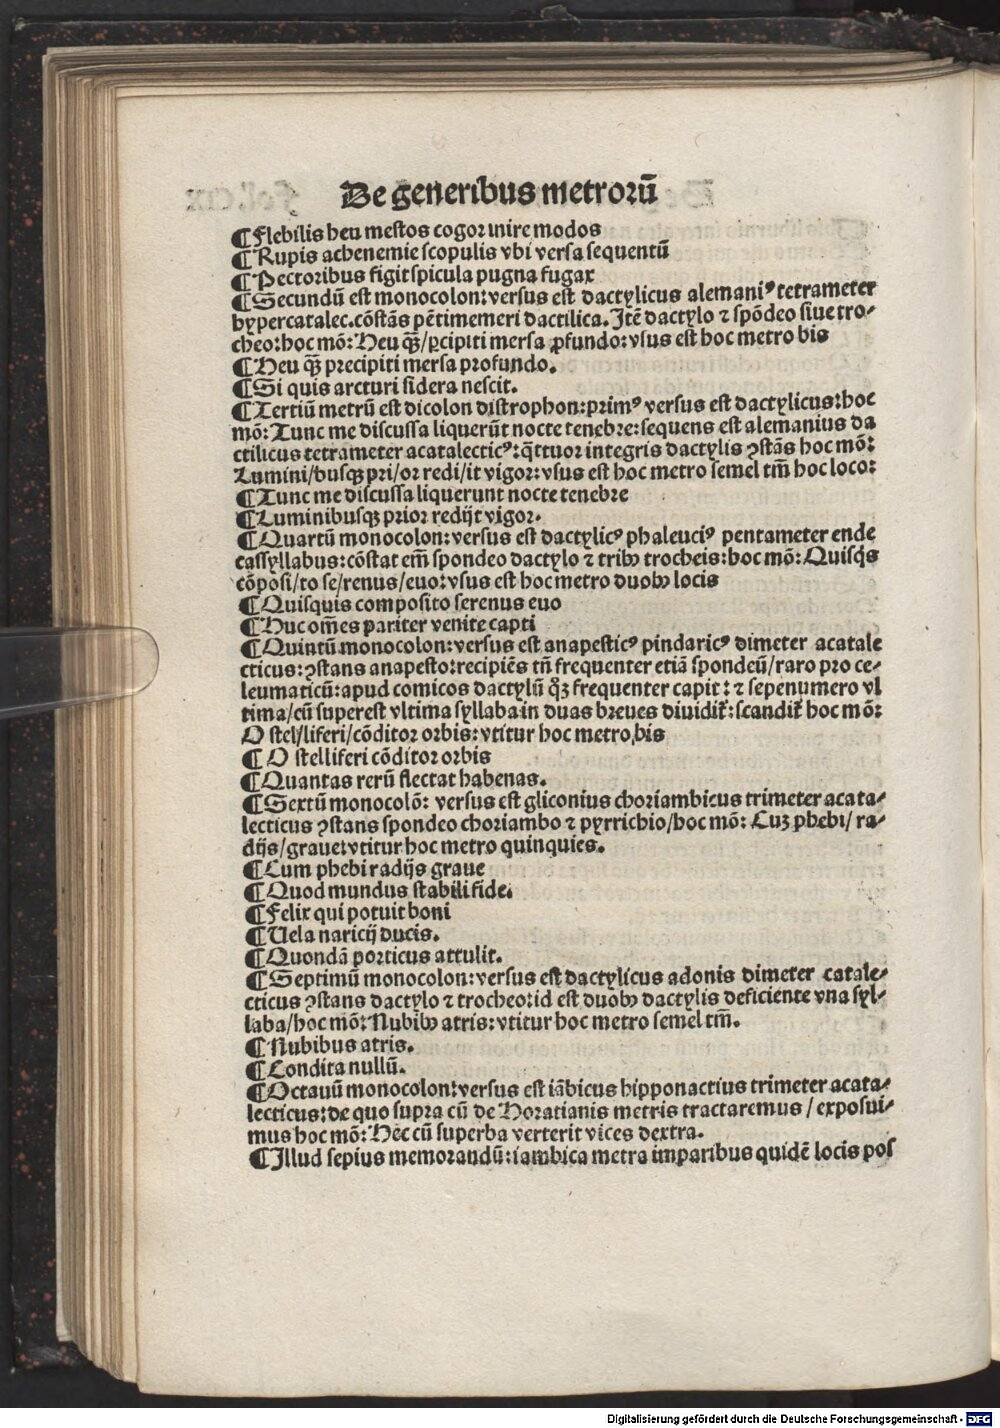 De generibus metrorũ
¶ Flebilis heu mestos cogor inire modos
¶ Rupis achenemie scopulis vbi versa sequentũ
¶ Pectoribus figit spicula pugna fugax
¶ Secundũ est monocolon: versus est dactylicus alemaniꝰ tetrameter
hypercatalec. cõstãs pẽtimemeri dactilica. Itẽ dactylo ⁊ spõdeo siue tro⸗
cheo: hoc mõ: Heu qͣ̃/p̱cipiti mersa ꝓfundo: vsus est hoc metro bis
¶ Heu qͣ̃ precipiti mersa profundo.
¶ Si quis arcturi sidera nescit.
¶ Tertiũ metrũ est dicolon distrophon: primꝰ versus est dactylicus: hoc
mõ: Tunc me discussa liquerũt nocte tenebre: sequens est alemanius da
ctilicus tetrameter acatalecticꝰ: q̃ttuor integris dactylis ꝯstãs hoc mõ:
Lumini/busqꝫ pri/or redi/it vigor: vsus est hoc metro semel tm̃ hoc loco:
¶ Tunc me discussa liquerunt nocte tenebre
¶ Luminibusqꝫ prior redijt vigor.
¶ Quartũ monocolon: versus est dactylicꝰ phaleuciꝰ pentameter ende
cassyllabus: cõstat em̃ spondeo dactylo ⁊ tribꝰ trocheis: hoc mõ: Quisq̇s
cõposi/to se/renus/euo: vsus est hoc metro duobꝰ locis
¶ Quisquis composito serenus euo
¶ Huc om̃es pariter venite capti
¶ Quintũ monocolon: versus est anapesticꝰ pindaricꝰ dimeter acatale
cticus: ꝯstans anapesto: recipiẽs tñ frequenter etiã spondeũ/raro pro ce⸗
leumaticũ: apud comicos dactylũ qͦꝫ frequenter capit: ⁊ sepenumero vl
tima/cũ superest vltima syllaba in duas breues diuidit᷑: scandit᷑ hoc mõ:
O stel/liferi/cõditor orbis: vtitur hoc metro bis
¶ O stelliferi cõditor orbis
¶ Quantas rerũ flectat habenas.
¶ Sextũ monocolõ: versus est gliconius choriambicus trimeter acata⸗
lecticus ꝯstans spondeo choriambo ⁊ pyrrichio/hoc mõ: Cuꝫ phebi/ ra⸗
dijs/graue: vtitur hoc metro quinquies.
¶ Cum phebi radijs graue
¶ Quod mundus stabili fide.
¶ Felix qui potuit boni
¶ Uela naricij ducis.
¶ Quondã porticus attulit.
¶ Septimũ monocolon: versus est dactylicus adonis dimeter catale⸗
cticus ꝯstans dactylo ⁊ trocheo: id est duobꝰ dactylis deficiente vna syl⸗
laba/hoc mõ: Nubibꝰ atris: vtitur hoc metro semel tm̃.
¶ Nubibus atris.
¶ Condita nullũ.
¶ Octauũ monocolon: versus est iãbicus hipponactius trimeter acata⸗
lecticus: de quo supra cũ de Horatianis metris tractaremus / exposui⸗
mus hoc mõ: Hec cũ superba verterit vices dextra.
¶ Illud sepius memorandũ: iambica metra imparibus quidẽ locis pos
Digitalisierung gefördert durch die Deutsche Forschungsgemeinschaft - DFG